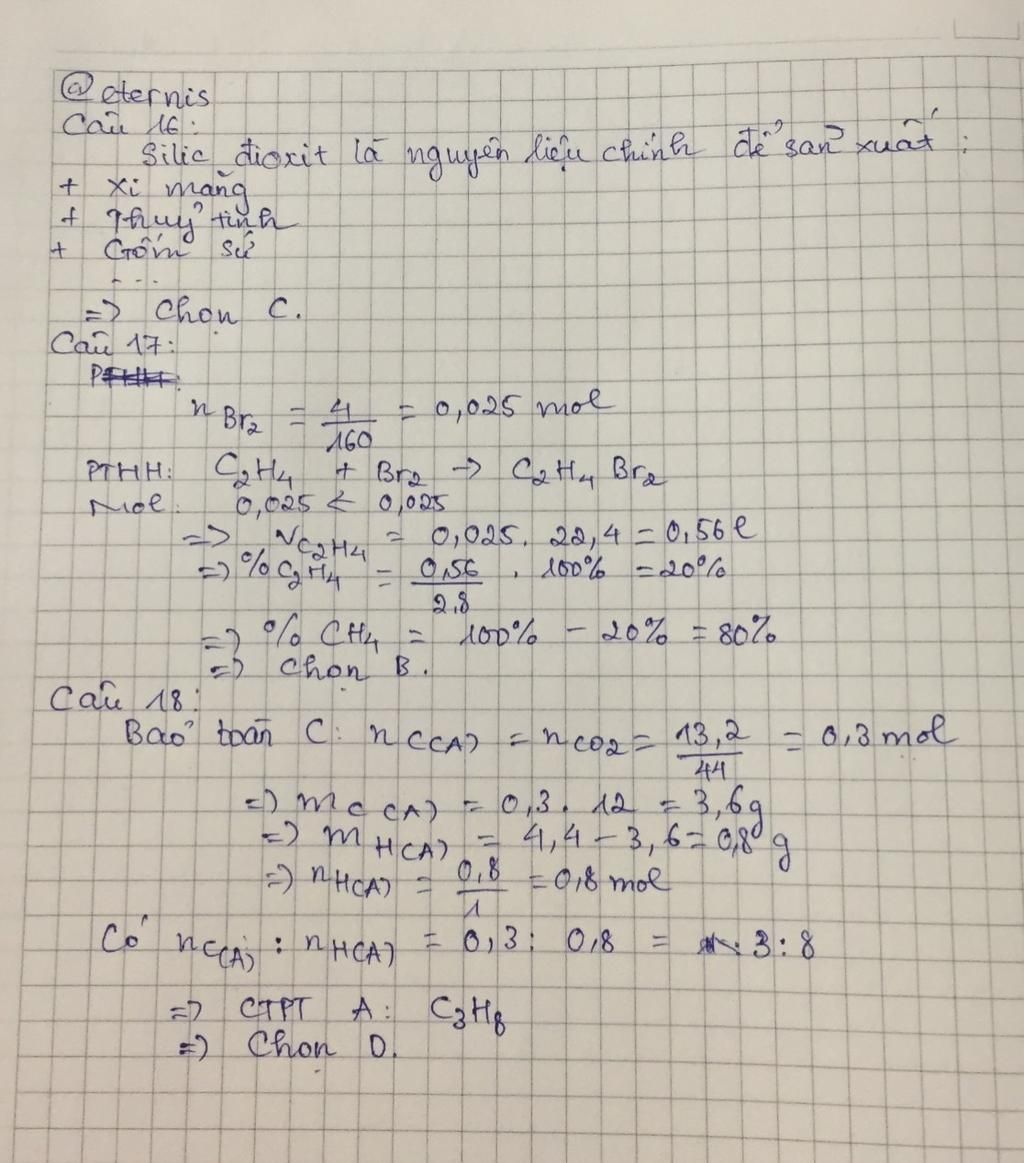 @eternis
Câu 16:
Silic đioxit là nguyên liệu chính để sản xuất:
+ Xi măng
+ Thuỷ tinh
+ Gốm sứ
...
=> Chọn C.
Câu 17:
n Br₂ = 4/160 = 0,025 mol
PTHH: C₂H₄ + Br₂ → C₂H₄Br₂
Mol: 0,025 ← 0,025
=> V C₂H₄ = 0,025. 22,4 = 0,56 l
=> % C₂H₄ = 0,56/2,8 . 100% = 20%
=> % CH₄ = 100% - 20% = 80%
=> Chọn B.
Câu 18:
Bảo toàn C: n C(A) = n CO₂ = 13,2/44 = 0,3 mol
=> m C(A) = 0,3. 12 = 3,6g
=> m H(A) = 4,4 - 3,6 = 0,8 g
=> n H(A) = 0,8/1 = 0,8 mol
Có n C(A) : n H(A) = 0,3 : 0,8 = 3:8
=> CTPT A: C₃H₈
=> Chọn D.